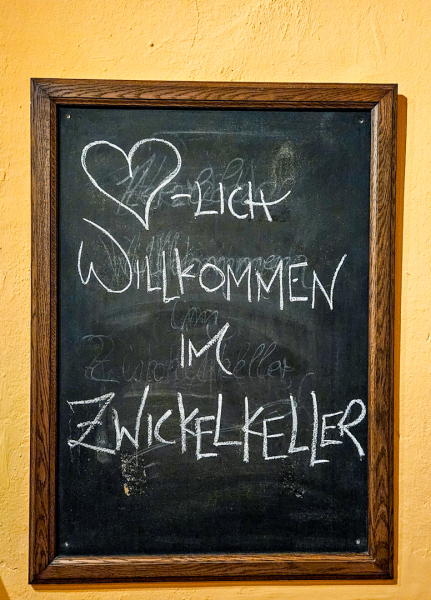 ♥-LICH
WILLKOMMEN
IM
ZWICKELKELLER